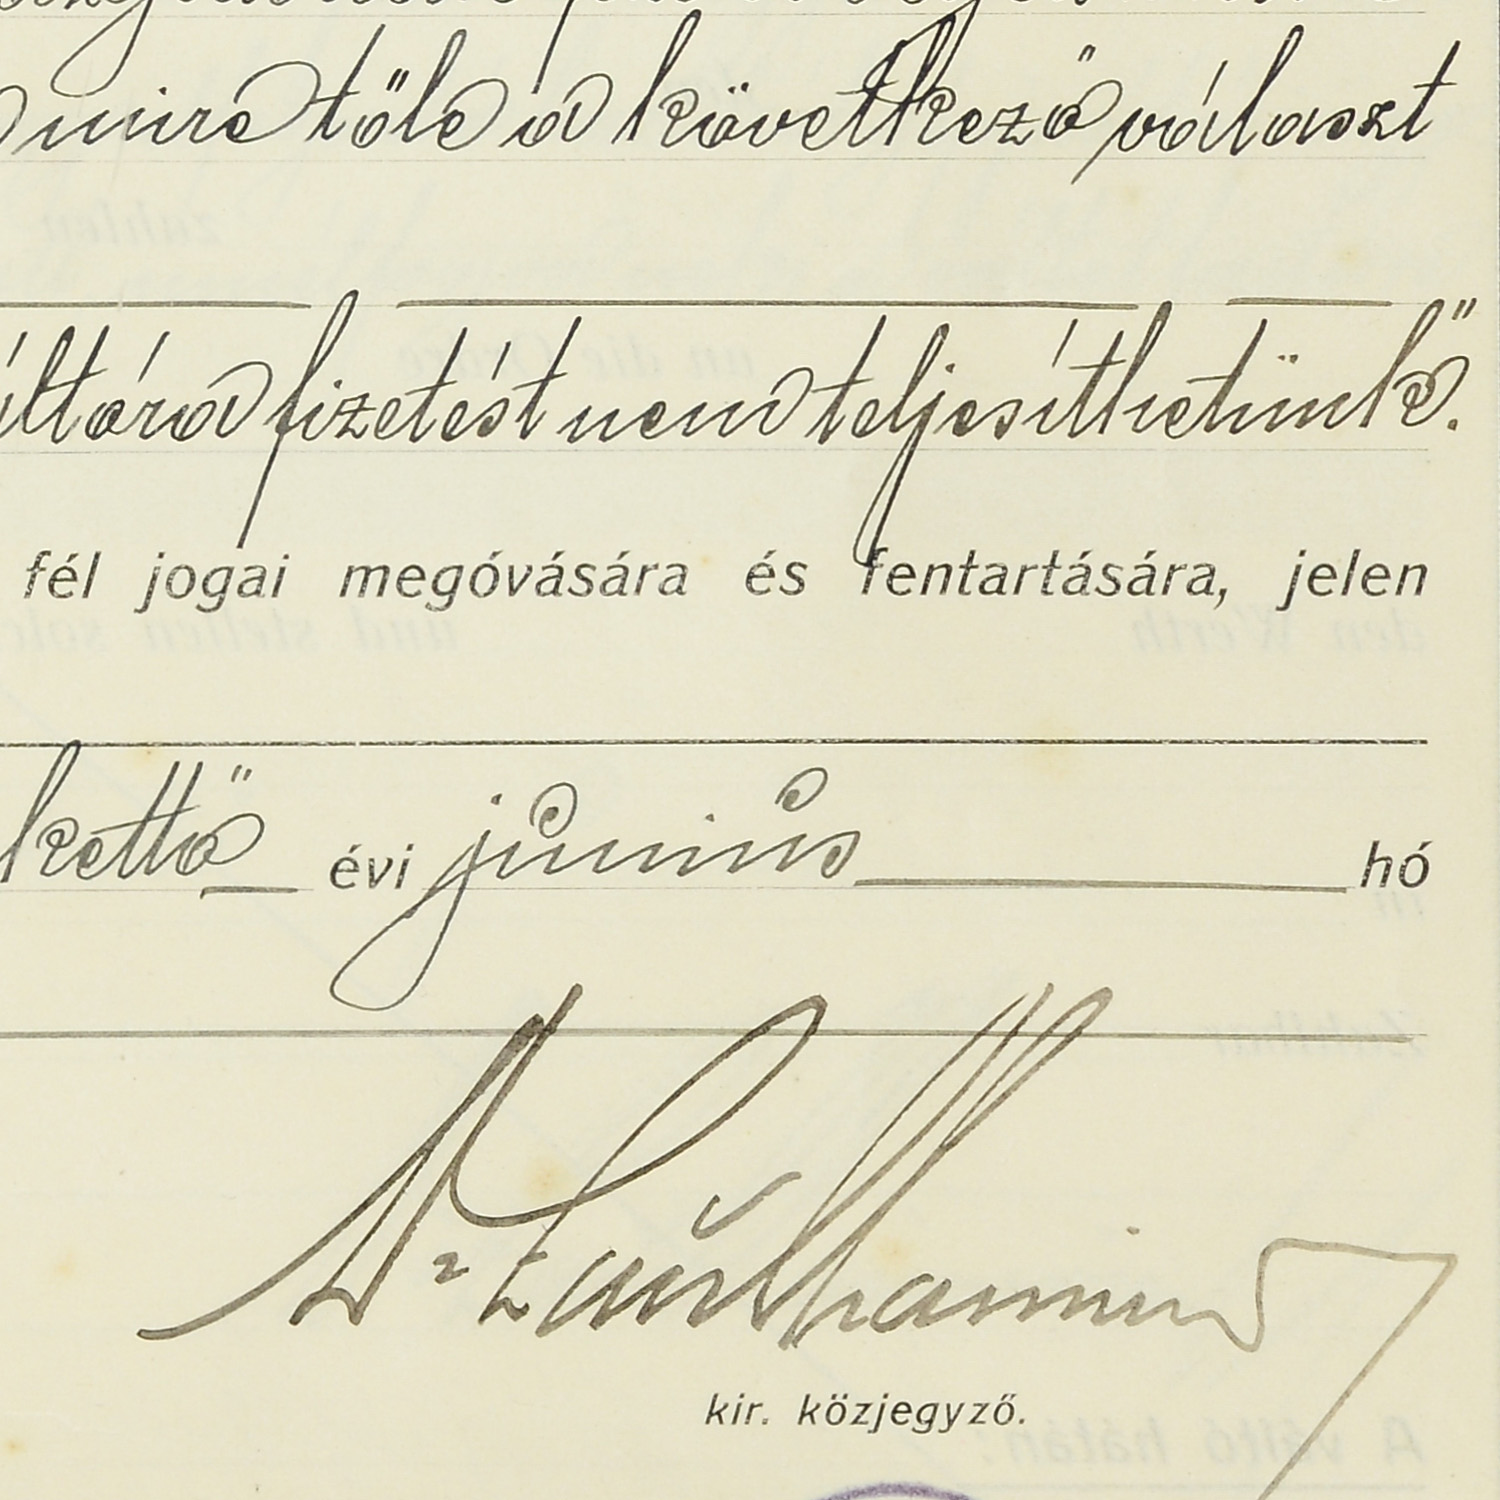 mire tőle a következő választ
fizetést nem teljesíthetünk."
fél jogai megóvására és fentartására, jelen
kettő évi június hó
Dr
kir. közjegyző.